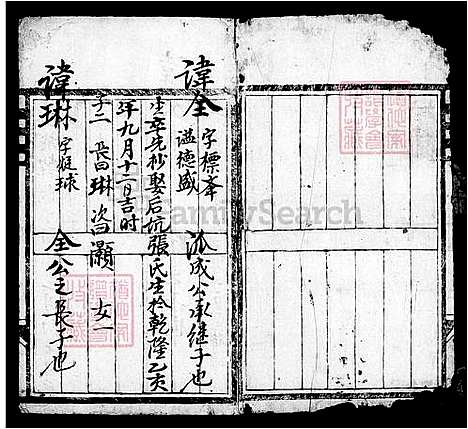 諱全 字標峯 諡德盛 派成公承继子也
生卒先抄娶后坑張氏生於乾隆乙亥
年九月十二日吉时
子二 長曰琳 次曰灝 女一
諱琳 字廷球 全公之長子也
FamilySearch